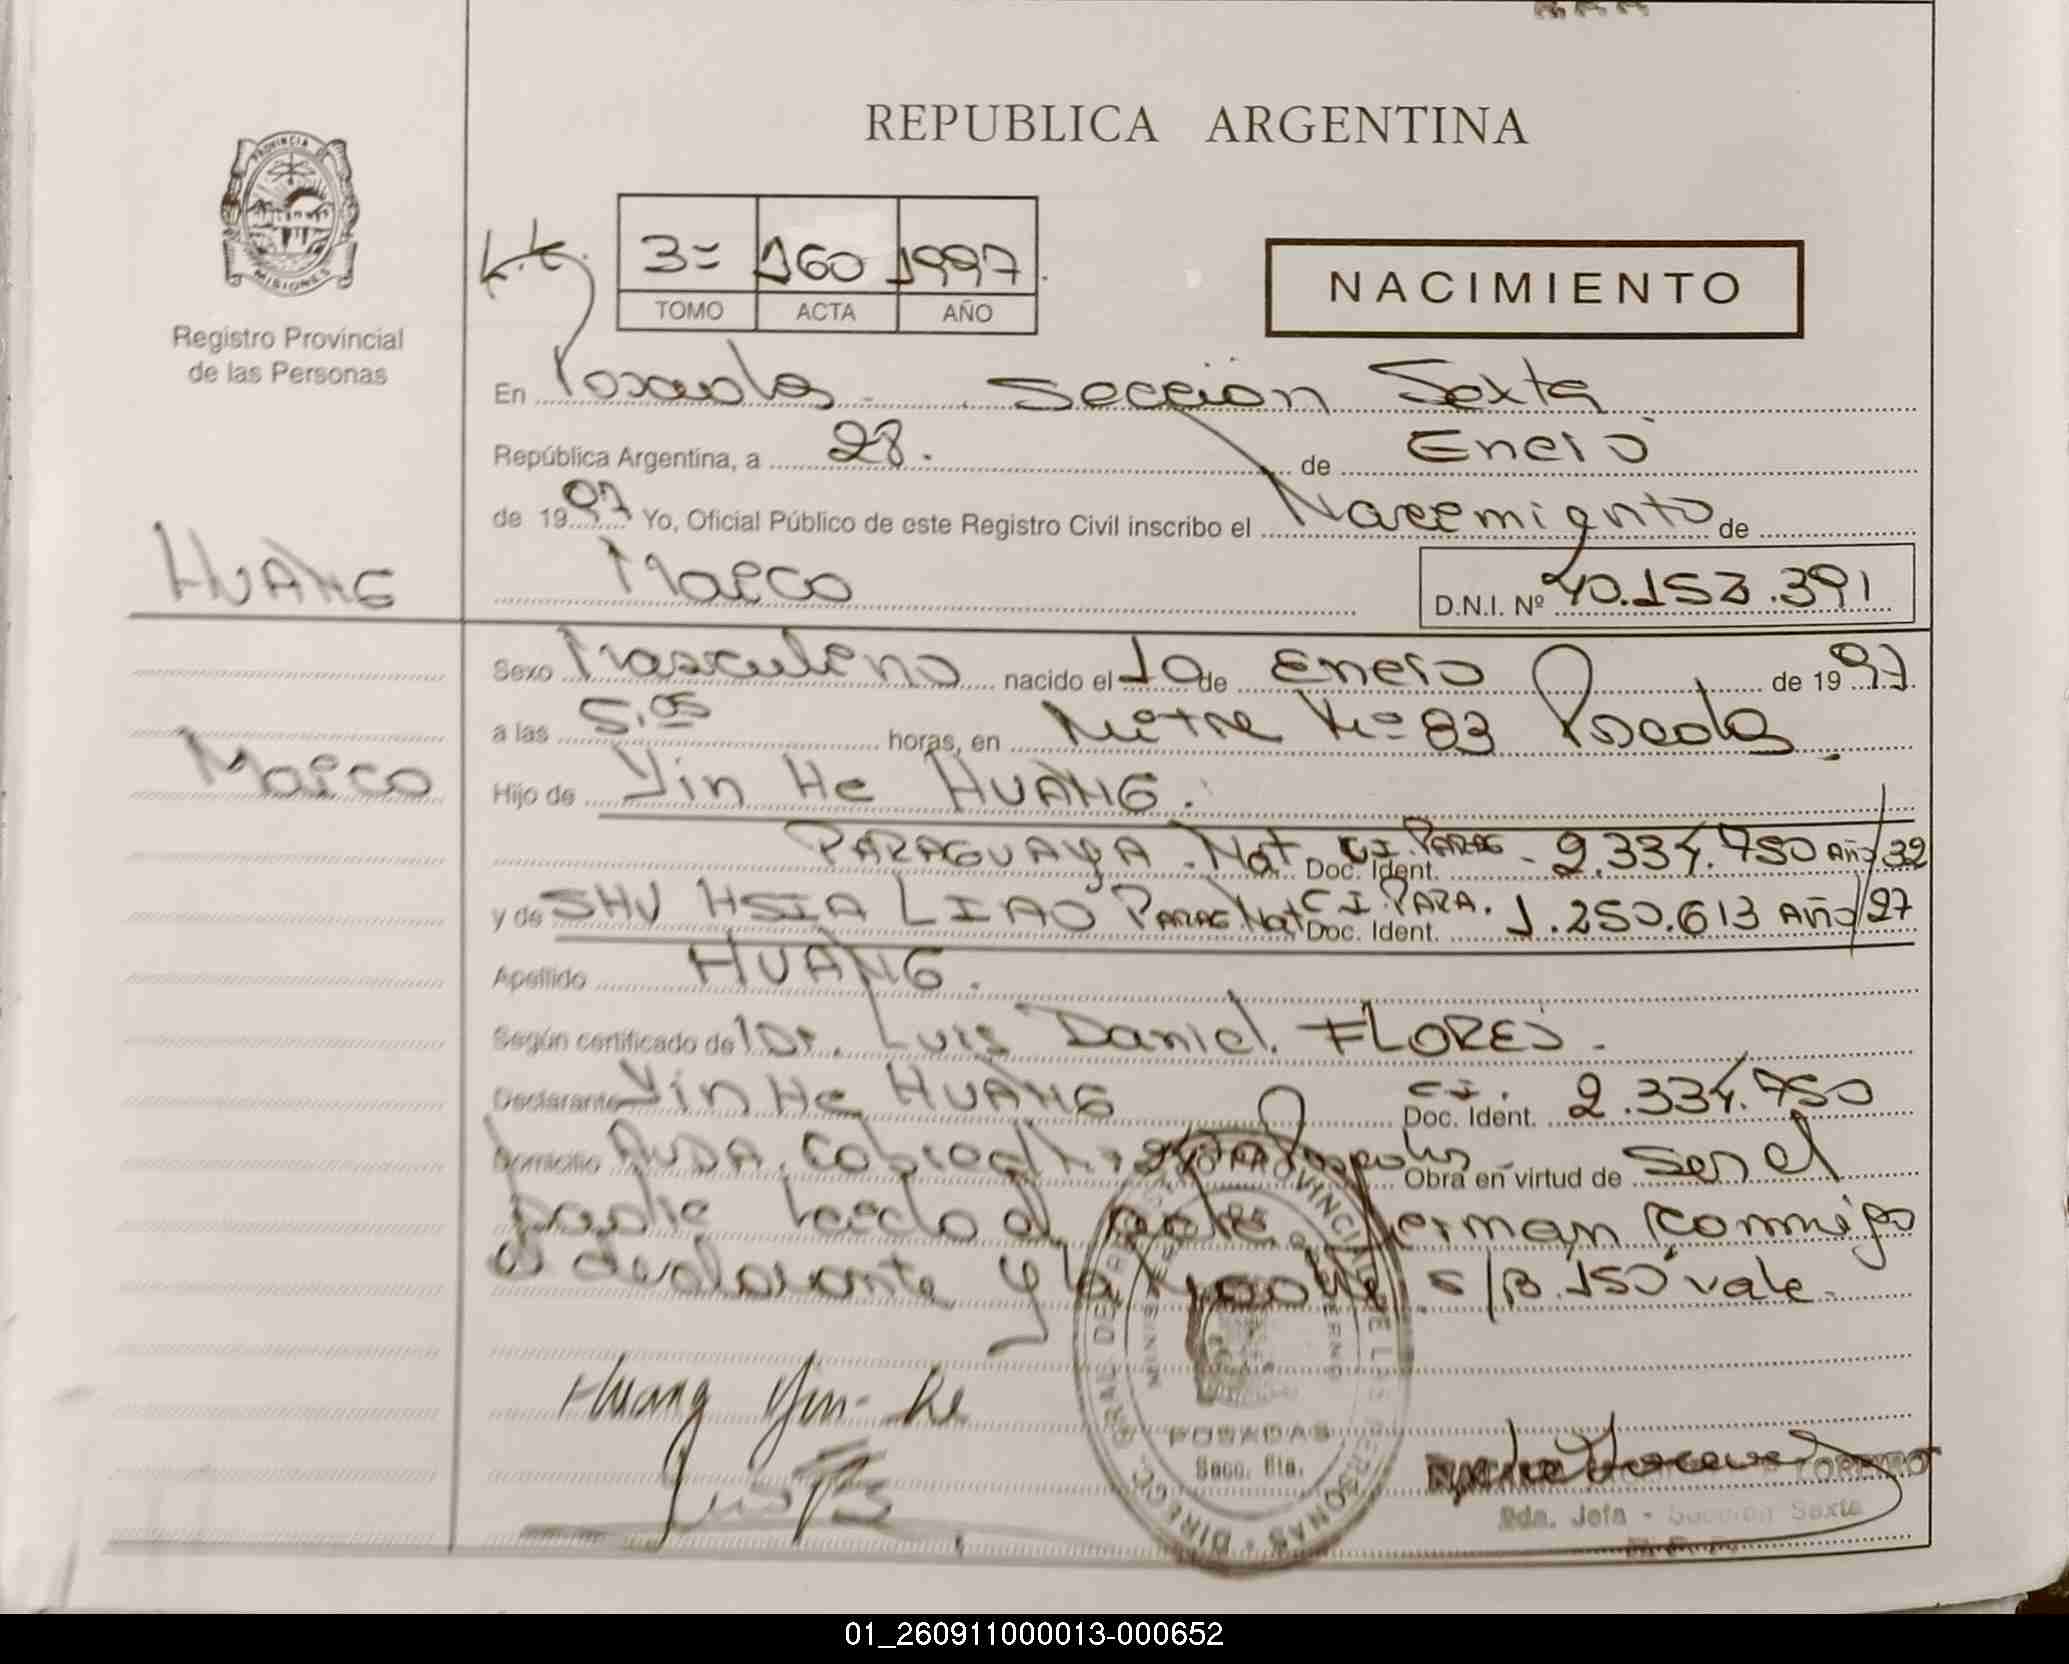 REPUBLICA ARGENTINA
PROVINCIA DE
MISIONES
Registro Provincial
de las Personas
3= 160 1997
TOMO ACTA AÑO
NACIMIENTO
En Posadas - Sección Sexta
República Argentina, a 28. de Enero
de 1997 Yo, Oficial Público de este Registro Civil inscribo el Nacemiento de
HUANG
Marco
D.N.I. Nº 40.153.391
Sexo Masculeno nacido el 10 de Enero de 1997
a las 5.05 horas, en Mitre Nº 83 Posadas
Marco
Hijo de Yin He HUANG.
PARAGUAYA. Nat C.I. PARAG - Doc. Ident. 2.334.750 Año/32
y de SHU HSIA LIAO PARAG. Nat C.I. PARA. Doc. Ident. 1.250.613 Año/27
Apellido HUANG.
Según certificado del Dr. Luis Daniel. FLORES.
Declarante Yin He HUANG C.I. Doc. Ident. 2.334.750
Domicilio AVDA. Obra en virtud de ser el
padre Leedo el firman conmigo
el declarante y la madre. S/B. 150 vale.
Huang Yin-He
POSADAS
Secc. 6ta.
Jefa - Sección Sexta
01_260911000013-000652